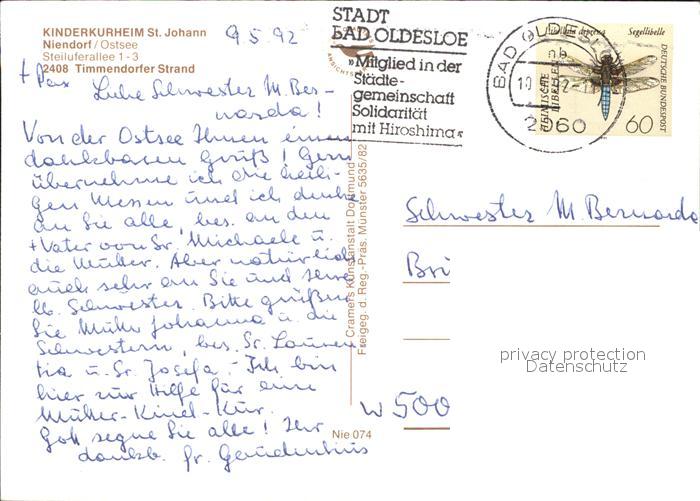 KINDERKURHEIM St. Johann
Niendorf / Ostsee
Steiluferallee 1 - 3
2408 Timmendorfer Strand
9.5.92
+ Pax
Liebe Schwester M. Ber-
narda!
Von der Ostsee Ihnen einen
dankbaren Gruß! Gern
übernehme ich die heili-
gen Messen und ich denke
an Sie alle, bes. an den
+ Vater von Sr. Michaele u.
die Mutter. Aber natürlich
auch sehr an Sie und Ihre
lb. Schwester. Bitte grüßen
Sie Mutter Johanna u. die
Schwestern, bes. Sr. Lauren
tia u. Sr. Josefa. Ich bin
hier zur Hilfe für eine
Mutter-Kind-Kur.
Gott segne Sie alle! Ihr
dankb. fr. Gaudentius
Cramers Kunstanstalt Dortmund
Freigeg. d. Reg.-Präs. Münster 5635/82
Nie 074
STADT
BAD OLDESLOE
»Mitglied in der
Städte-
gemeinschaft
Solidarität
mit Hiroshima«
BAD OLDESLOE
nb
2060
Segellibelle
DEUTSCHE BUNDESPOST
60
Schwester M. Bernarda
Bri
W 500
privacy protection
Datenschutz